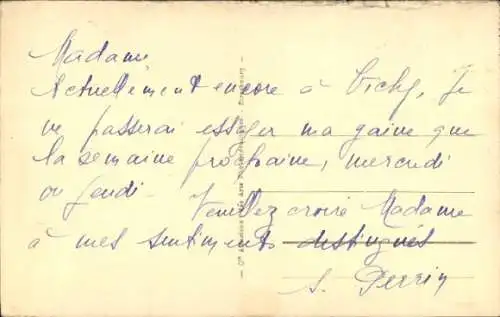 Madame
Actuellement encore à Vichy, je
ne passerai essayer ma gaine que
la semaine prochaine, mercredi
ou jeudi. Veuillez croire Madame
à mes sentiments distingués
S. Perrin